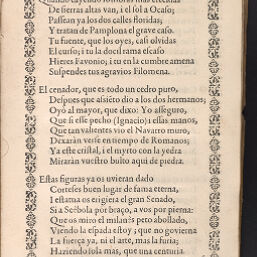 De sierras altas van, i el sol a Ocaso;
Passean ya los dos calles floridas,
Y tratan de Pamplona el grave caso.
Tu fuente, que los oyes, casi olvidas
El curso; i tu la docil rama escaso
Hieres Favonio; i tu en la cumbre amena
Suspendes tus agravios Filomena.
El cenador, que es todo un cedro puro,
Despues que assiẽto dio a los dos hermanos;
Oyó al mayor, que dixo: Yo asseguro,
Que si esse pecho (Ignacio) i essas manos,
Que tan valientes vio el Navarro muro,
Dexaràn verse en tiempo de Romanos;
Ya esse cristal, i el myrto con la yedra
Miraràn vuestro bulto aqui de piedra.
Estas figuras ya os uvieran dado
Corteses buen lugar de fama eterna,
I estatua os erigiera el gran Senado,
Si a Scębola por braço, a vos por pierna:
Que os miro el milanes peto abollado,
Viendo la espada estoy; que no govierna
La fuerça ya, ni el arte, mas la furia;
Haziendo sola mas, que una centuria